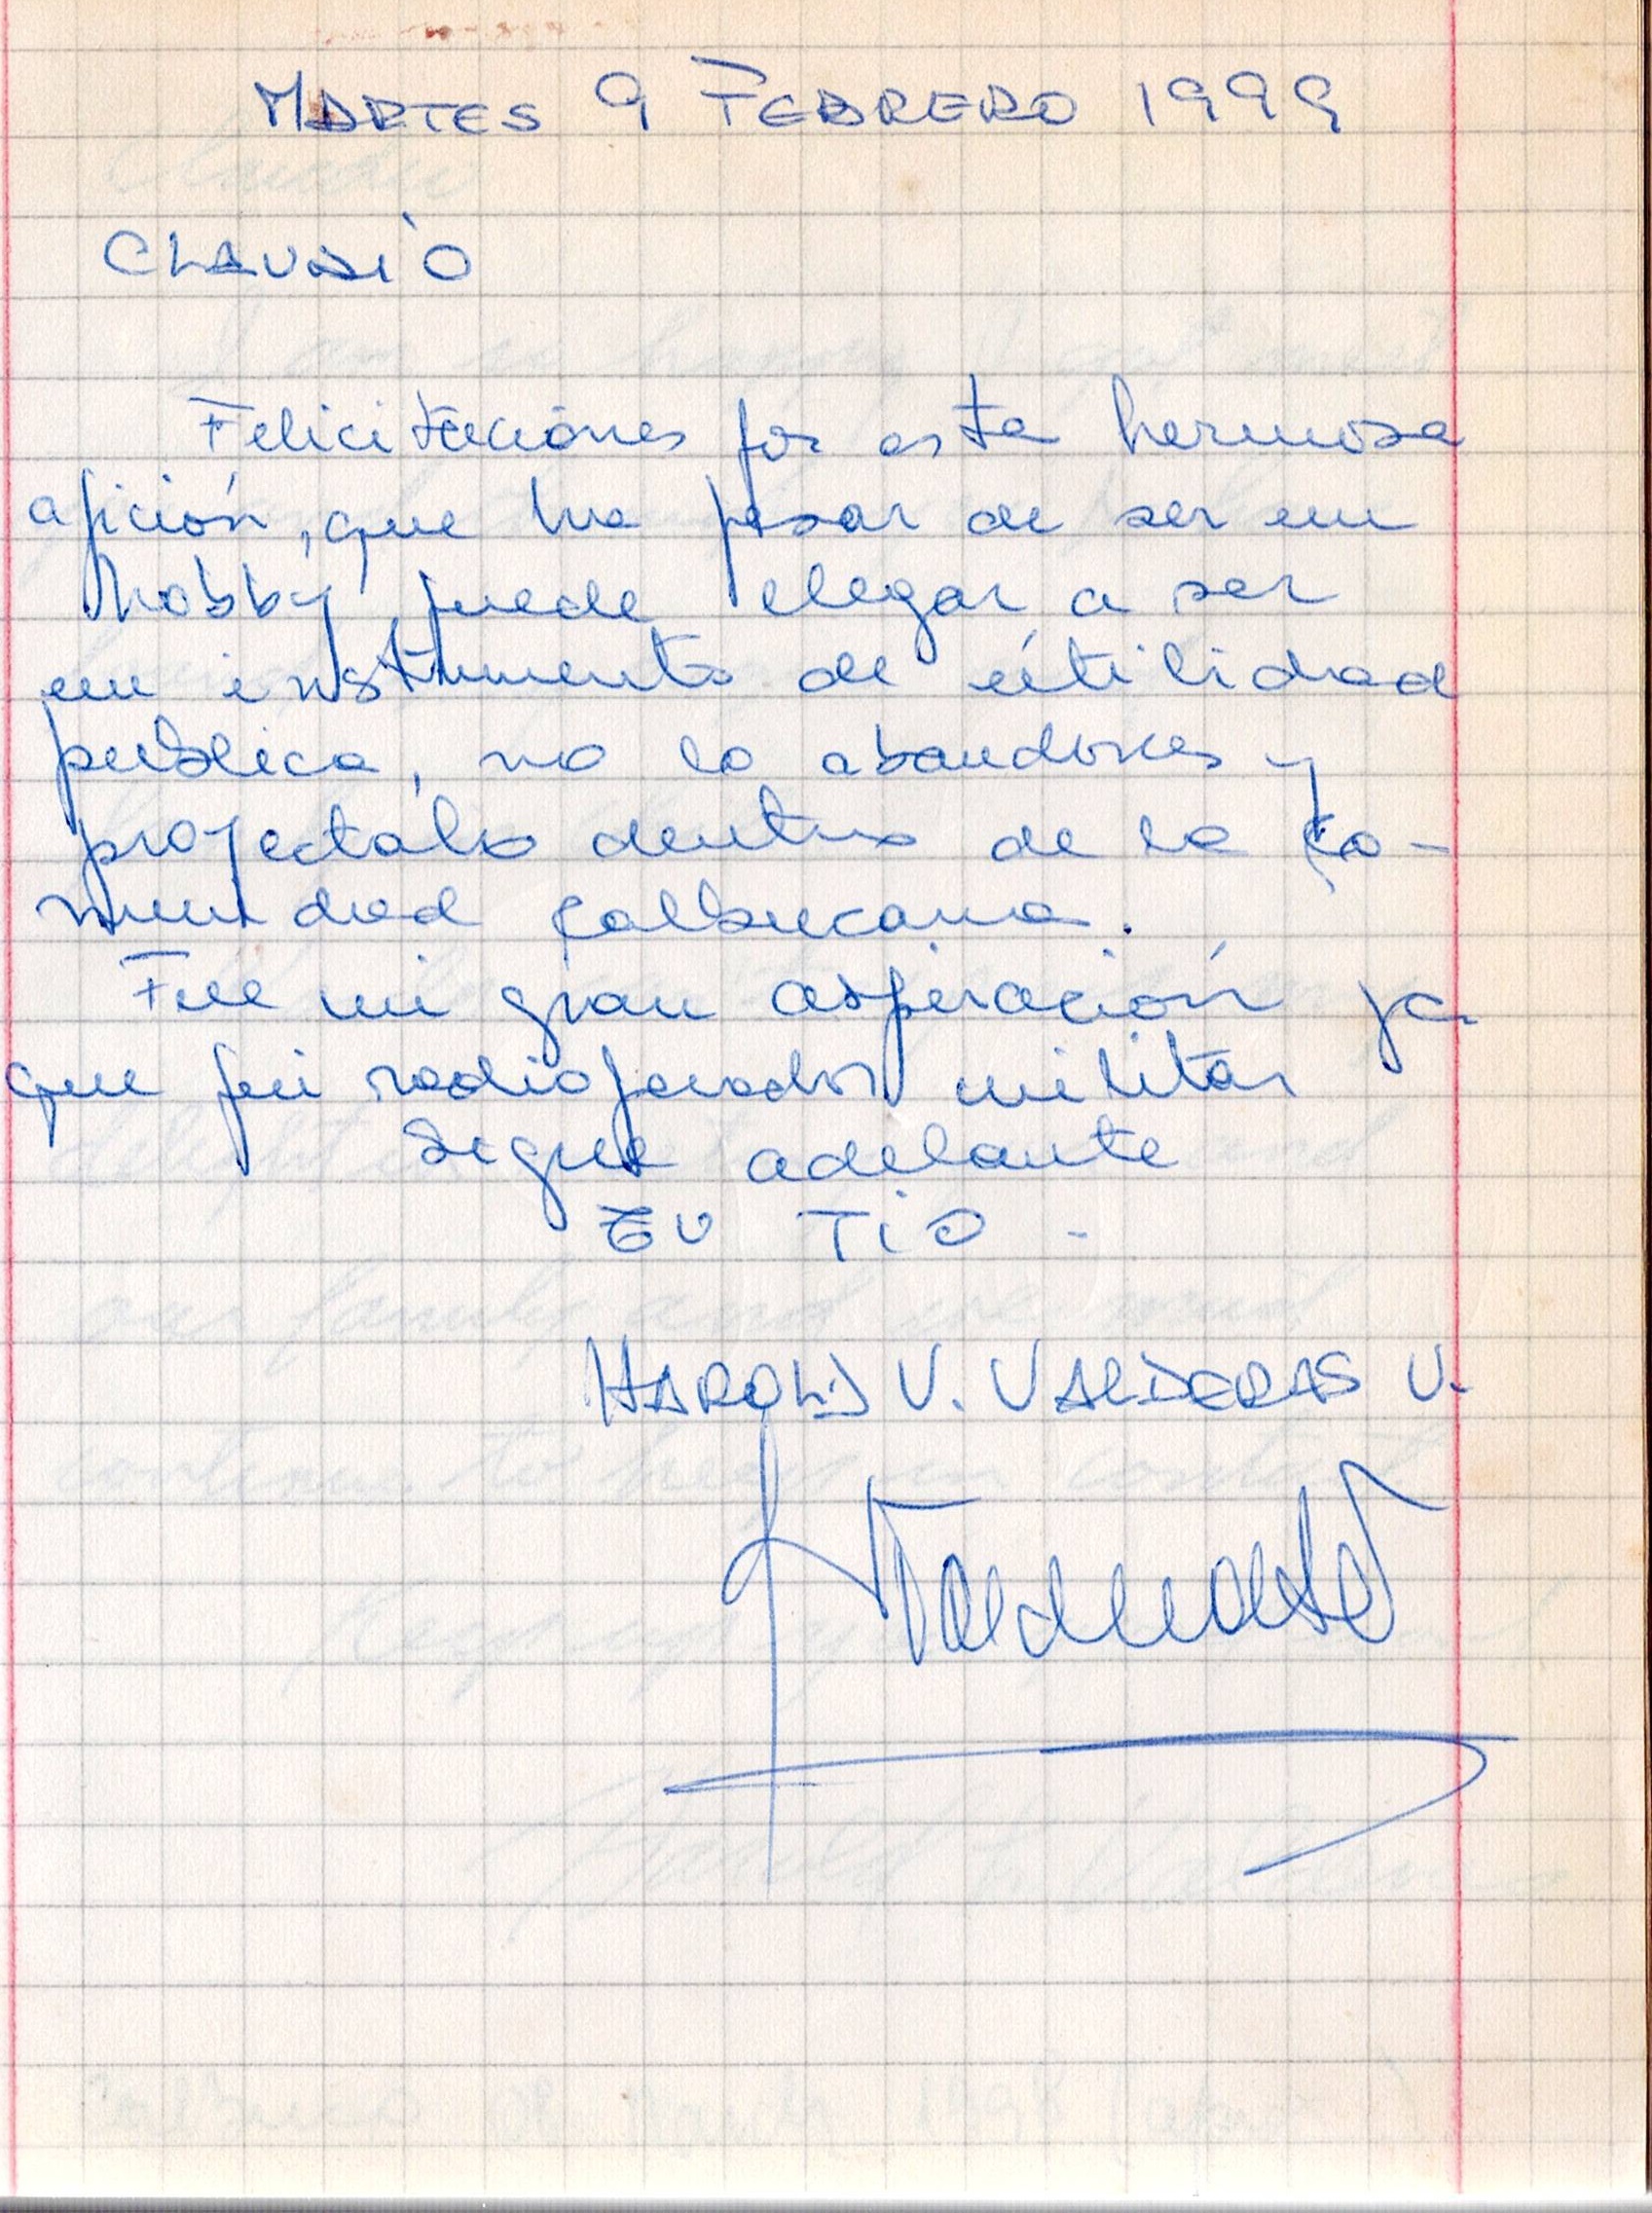 MARTES 9 FEBRERO 1999
CLAUDIO
Felicitaciones por esta hermosa
afición, que ha pesar de ser un
hobby puede llegar a ser
un instrumento de útilidad
publica, no lo abandones y
proyectalo dentro de la co-
munidad calbucana.
Fue mi gran aspiración ya
que fui radioperador militar
Sigue adelante
TU TIO -
HAROLD V. VALDERAS V.